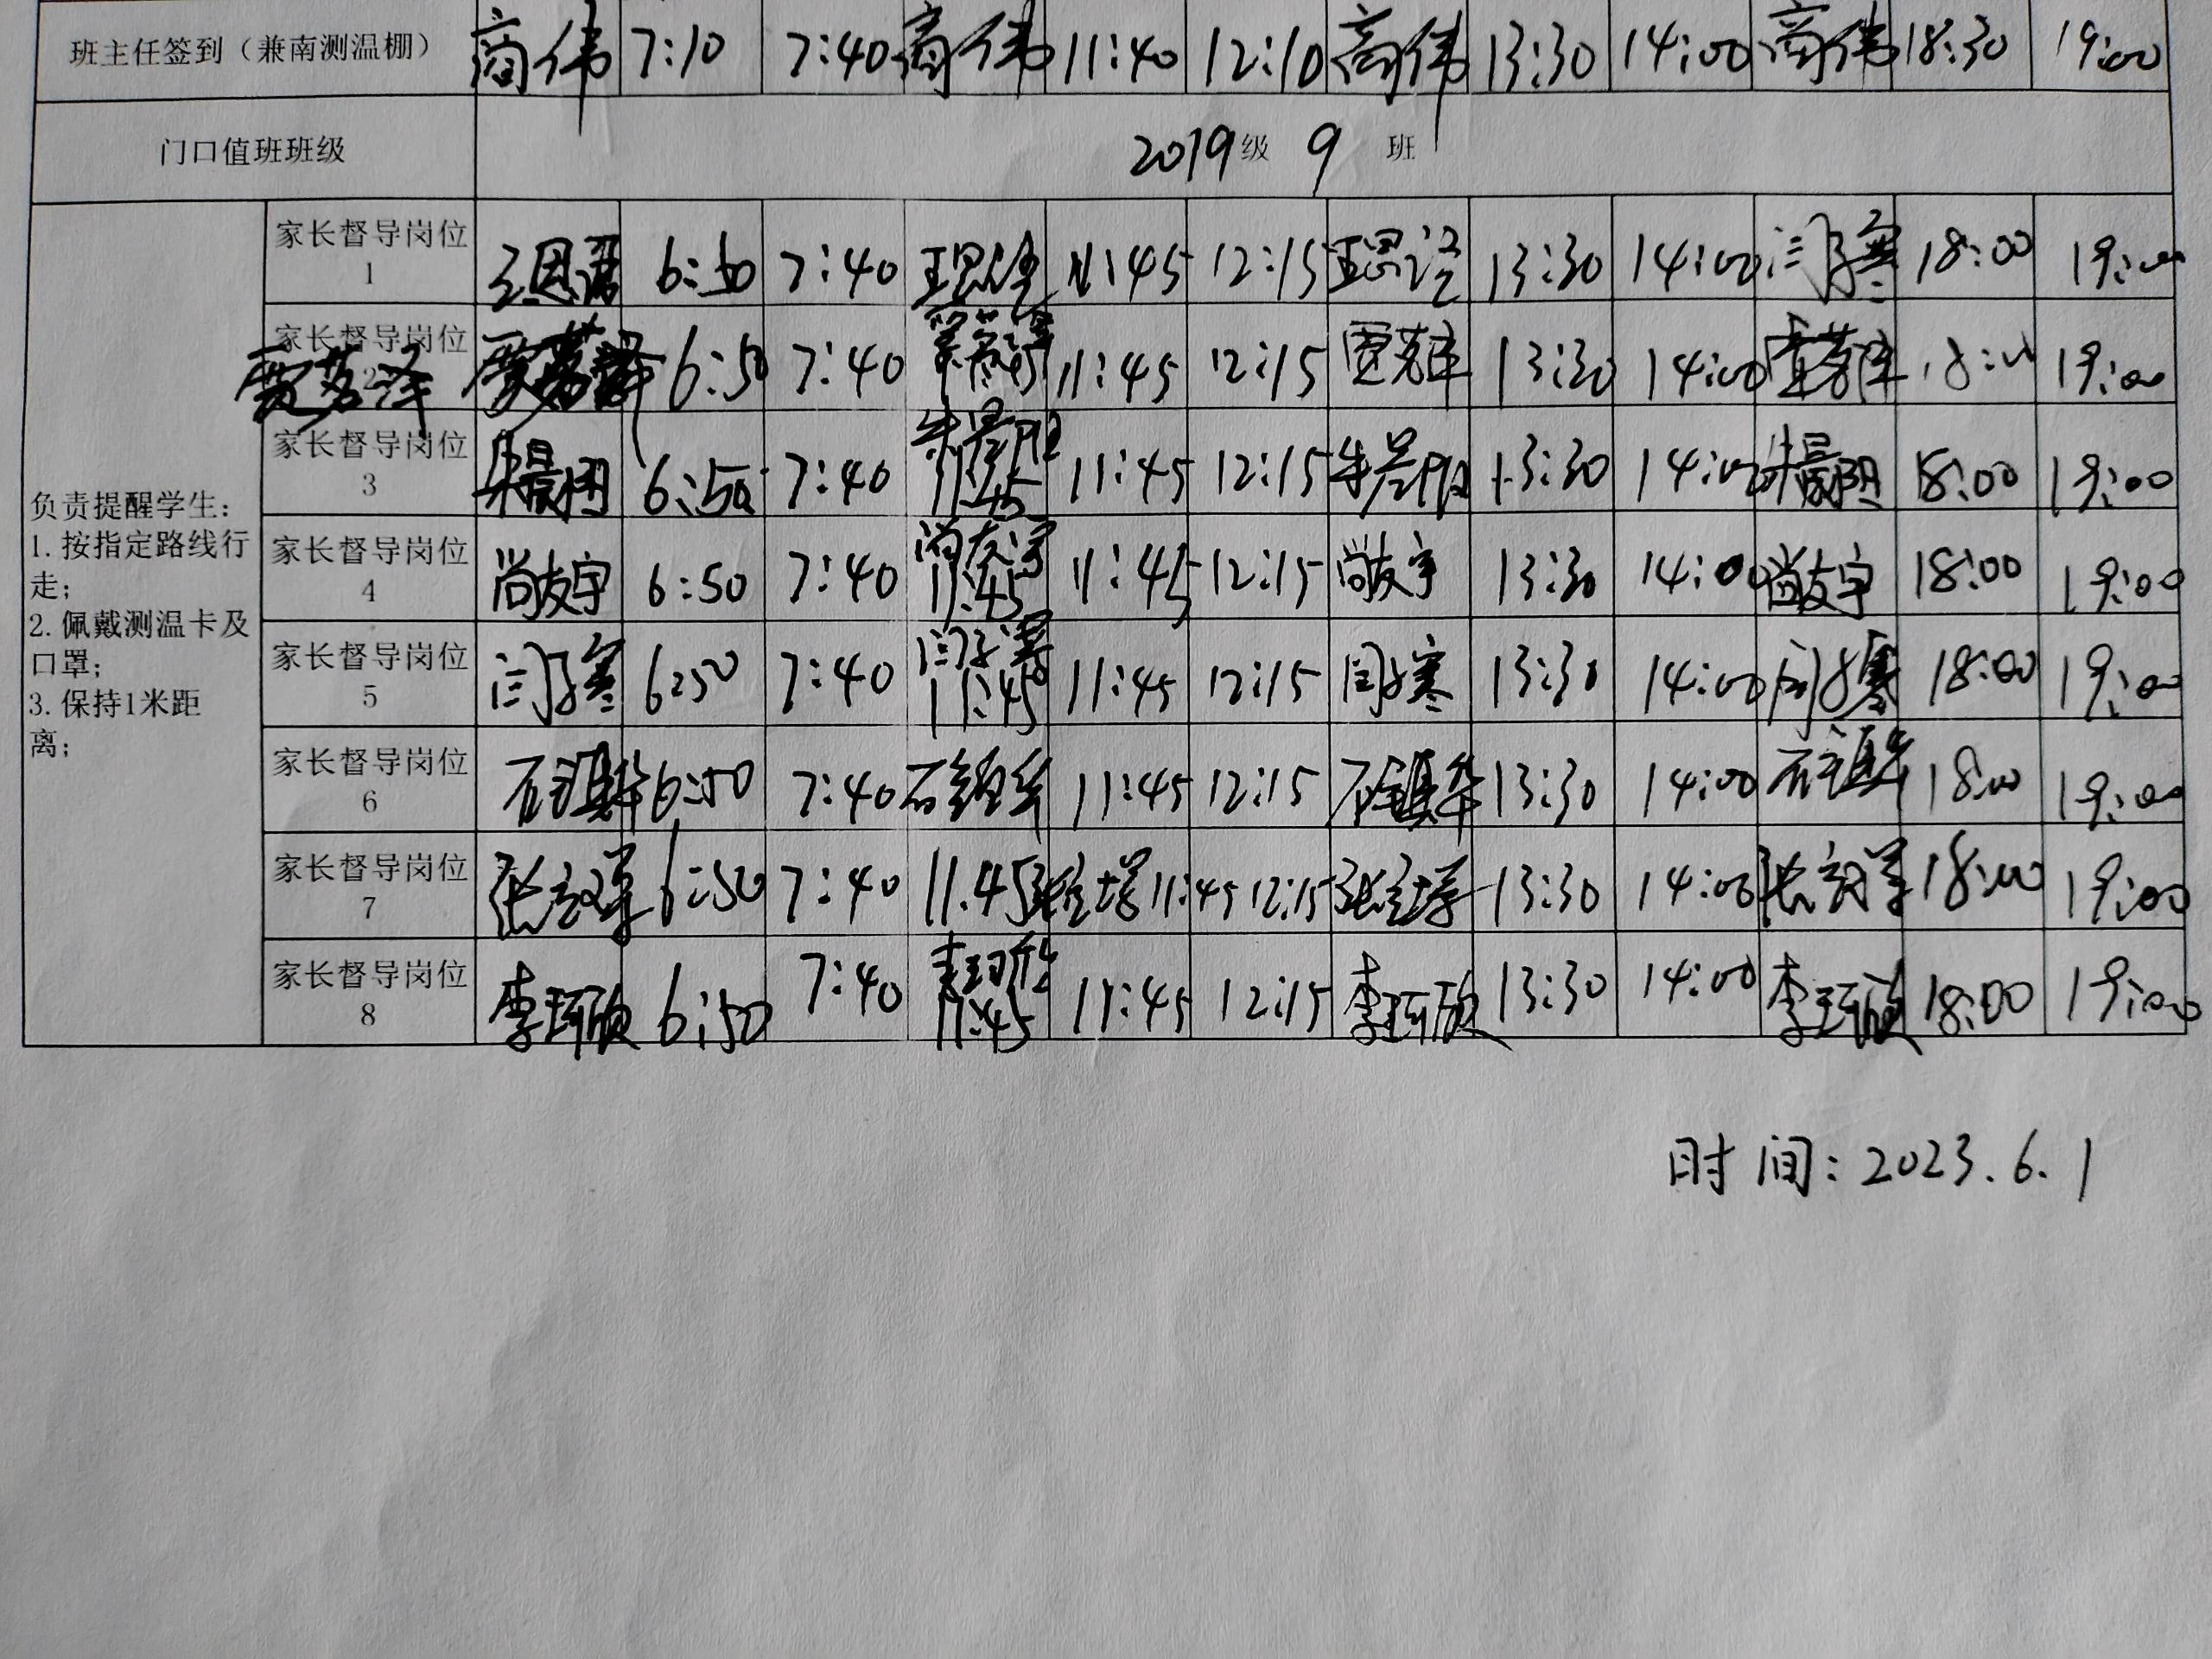 班主任签到（兼南测温棚） 商伟 7:10 7:40 商伟 11:40 12:10 商伟 13:30 14:00 商伟 18:30 19:00
门口值班班级 2019级 9 班
负责提醒学生：
1. 按指定路线行
走；
2. 佩戴测温卡及
口罩；
3. 保持1米距
离；
家长督导岗位
1 6:50 7:40 11:45 12:15 13:30 14:00 闫子寒 18:00 19:00
家长督导岗位
2 贾茗泽 6:50 7:40 11:45 12:15 13:30 14:00 18:00 19:00
家长督导岗位
3 朱晨阳 6:50 7:40 朱晨阳 11:45 11:45 12:15 朱晨阳 13:30 14:00 朱晨阳 18:00 19:00
家长督导岗位
4 尚友宇 6:50 7:40 尚友宇 11:45 11:45 12:15 尚友宇 13:30 14:00 尚友宇 18:00 19:00
家长督导岗位
5 闫子寒 6:50 7:40 闫子寒 11:45 11:45 12:15 闫子寒 13:30 14:00 闫子寒 18:00 19:00
家长督导岗位
6 6:50 7:40 11:45 12:15 13:30 14:00 18:00 19:00
家长督导岗位
7 6:50 7:40 11:45 11:45 12:15 13:30 14:00 18:00 19:00
家长督导岗位
8 李珂欣 6:50 7:40 李珂欣 11:45 11:45 12:15 李珂欣 13:30 14:00 李珂欣 18:00 19:00
时间：2023.6.1